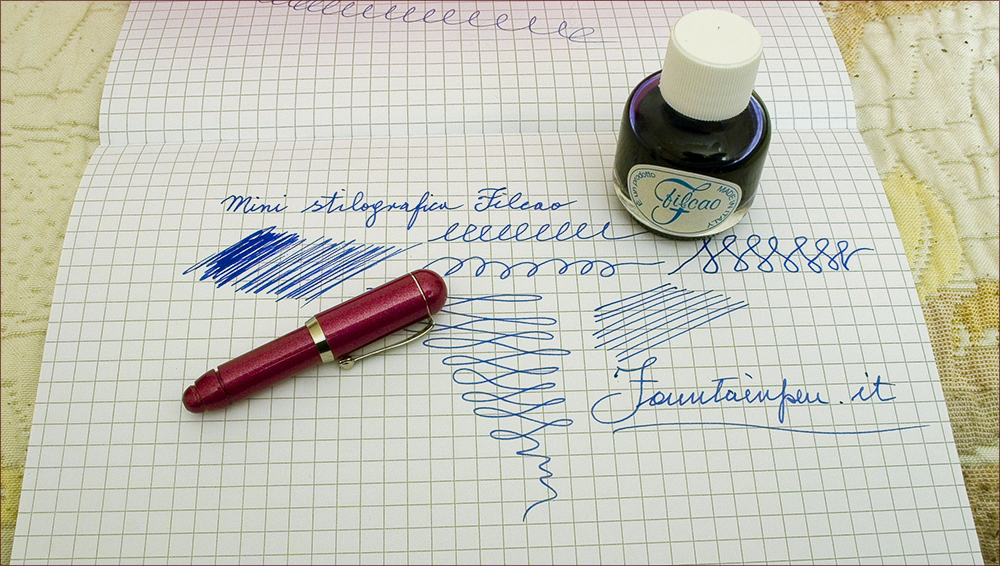 Mini stilografica Filcao
È un prodotto
Filcao
MADE IN ITALY
Fountainpen.it